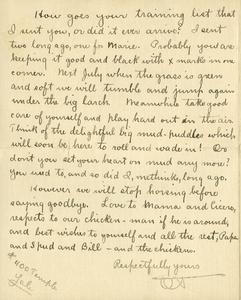 How goes your training list that
I sent you, or did it ever arrive? I sent
two long ago, one for Marie. Probably you are
keeping it good and black with x marks in one
corner. Next July when the grass is green
and soft we will tumble and jump again
under the big larch. Meanwhile take good
care of yourself and play hard out in the air
Think of the delightful big mud-puddles which
will soon be here to roll and wade in! Or
dont you set your heart on mud any more?
You used to, and so did I, methinks, long ago.
However we will stop horsing before
saying goodbye. Love to Mama and Cicero,
respects to our chicken-man if he is around,
and best wishes to yourself and all the rest, Papa
and Spud and Bill - and the chickens.
Respectfully yours
#400 Temple